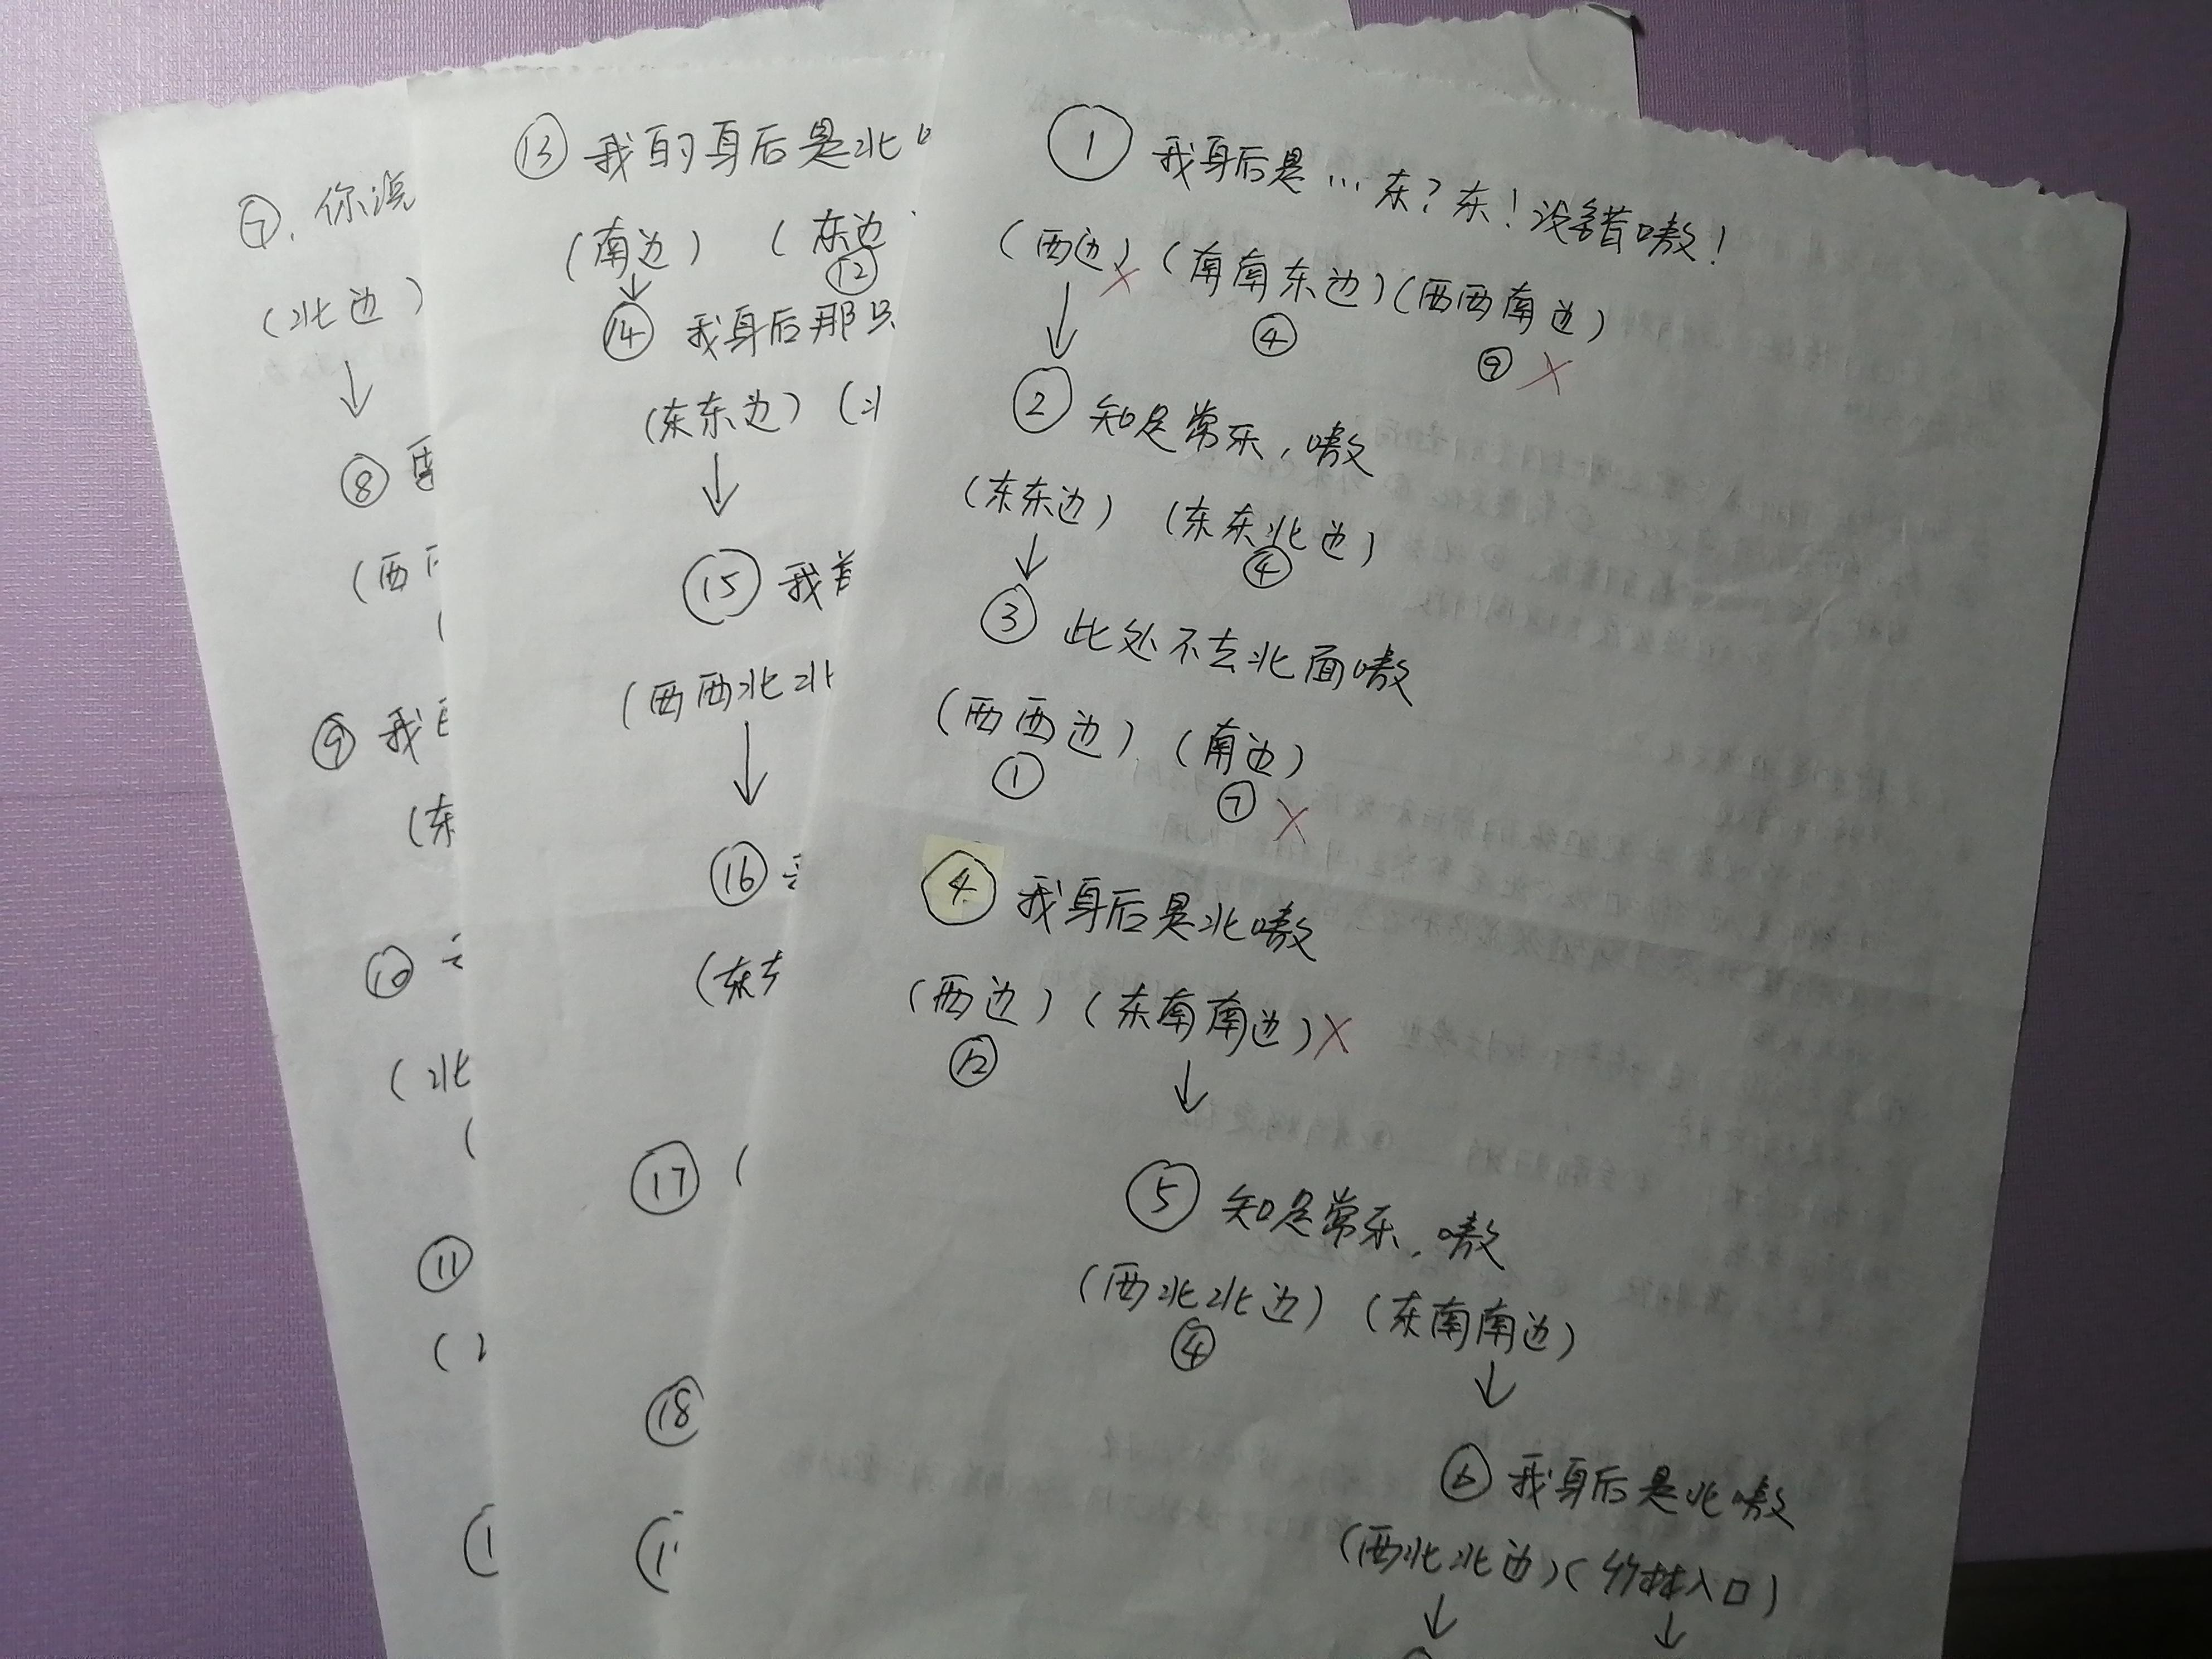 ① 我身后是…东?东!没错嗷!
(西边)× (南南东边)(西西南边)
④ ⑨ ×
② 知足常乐,嗷
(东东边) (东东北边)
④
③ 此处不去北面嗷
(西西边) (南边)
① ⑦ ×
④ 我身后是北嗷
(西边) (东南南边)×
⑫
⑤ 知足常乐,嗷
(西北北边) (东南南边)
④
⑥ 我身后是北嗷
(西北北边)(竹林入口)
⑬ 我的身后是北
(南边) (东边
⑫
⑭ 我身后那只
(东东边) (北
⑮ 我
(西西北北
⑯
(东
⑰ (
⑱
⑦. 你说
(北边)
⑧
(西
(
⑨ 我
(东
⑩
(北
(
⑪
(